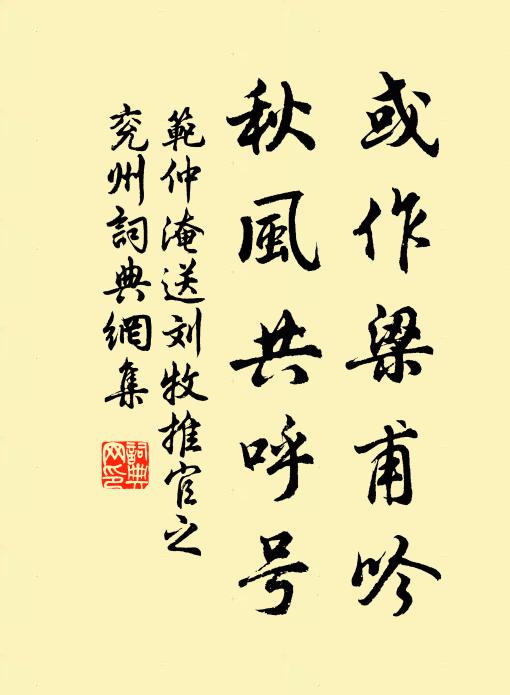 或作梁甫吟
秋風共呼号
範仲淹送刘牧推官之
兖州詞典網集
詞典
网印